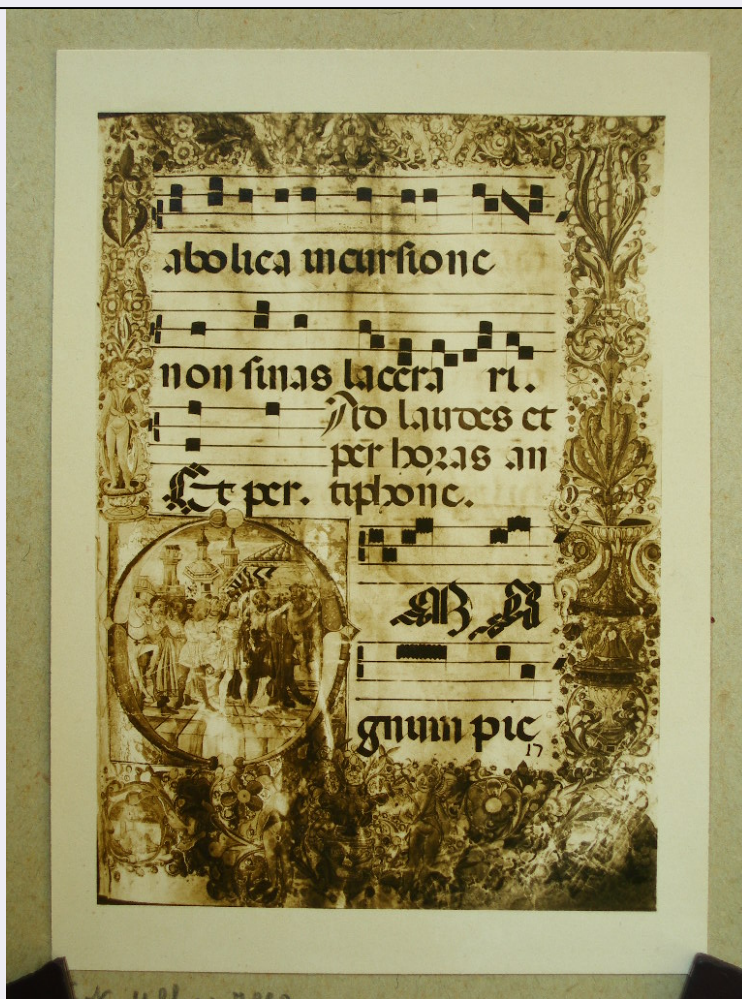 abolica incurſione
non ſinas lacera ri.
Ad laudes et
per horas an
Et per. tiphone.
O M A
gnum pie
17